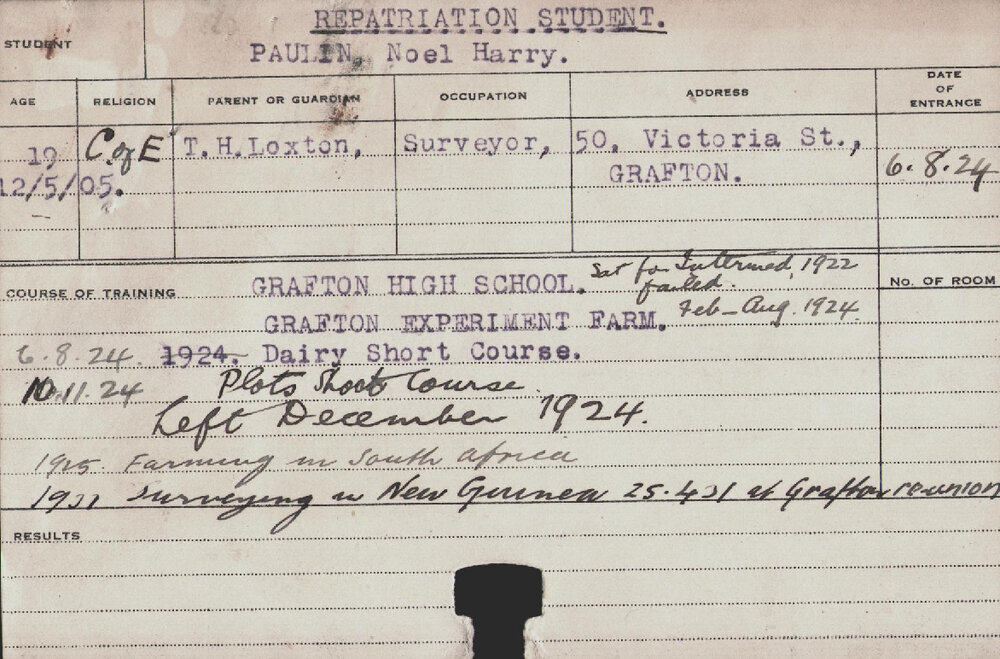 REPATRIATION STUDENT.
STUDENT
PAULIN, Noel Harry.
AGE RELIGION PARENT OR GUARDIAN OCCUPATION ADDRESS DATE OF ENTRANCE
19 C of E T.H.Loxton, Surveyor, 50, Victoria St., 6.8.24
12/5/05. GRAFTON.
COURSE OF TRAINING GRAFTON HIGH SCHOOL. Sat for Intermed. 1922 No. OF ROOM
failed.
GRAFTON EXPERIMENT FARM. Feb-Aug. 1924.
6.8.24. 1924. Dairy Short Course.
10.11.24 Plots Short Course.
Left December 1924.
1925. Farming in South Africa
1931 Surveying in New Guinea 25.4.31 at Grafton reunion
RESULTS